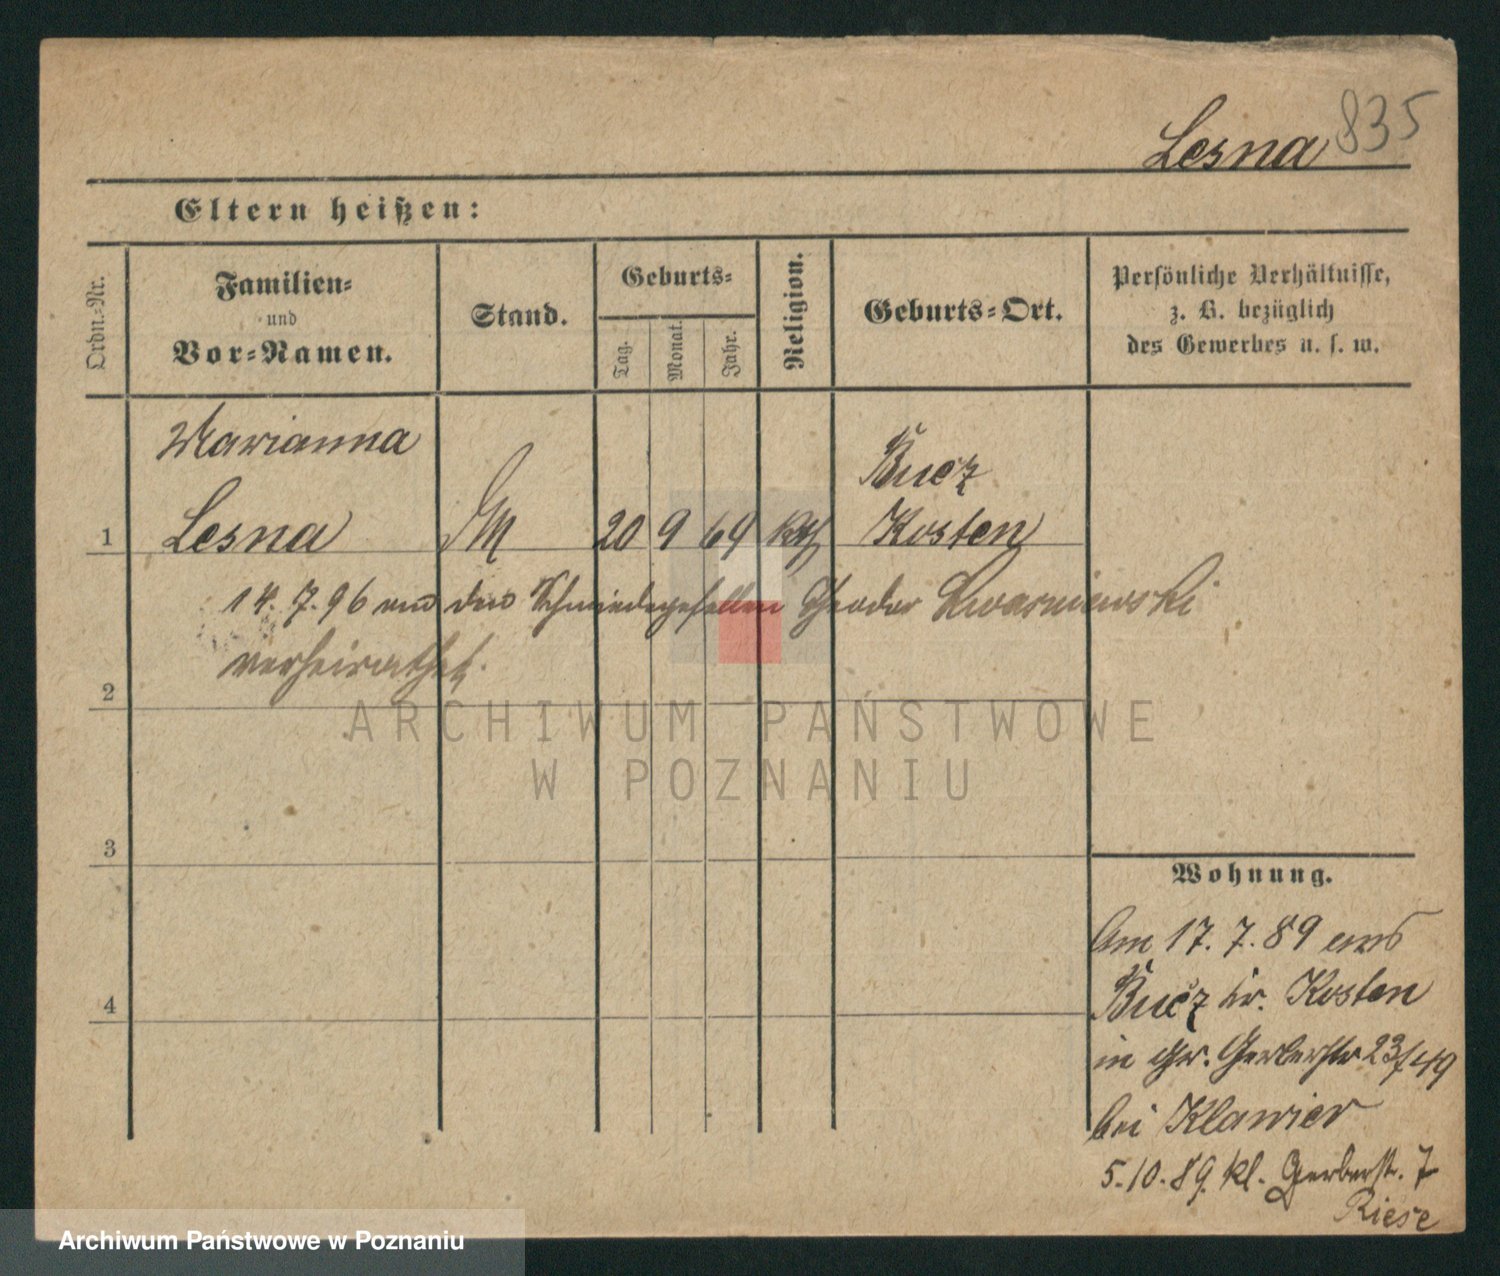 Lesna 835
Eltern heißen:
Ordn.-Nr.
Familien-
und
Vor-Namen.
Stand.
Geburts-
Tag.
Monat.
Jahr.
Religion.
Geburts-Ort.
Persönliche Verhältnisse,
z. B. bezüglich
des Gewerbes u. s. w.
Marianna
Bucz
1 Lesna M 20 9 64 kth Kosten
14. 7. 96 mit den Schmiedegesellen Theodor Kwasniewski
verheirathet.
2
3
4
Wohnung.
Am 17. 7. 89 aus
Bucz Kr. Kosten
in Gr. Gerberstr 23/49
bei Klawier
5. 10. 89. kl. Gerberstr. 7
Riese
ARCHIWUM PAŃSTWOWE
W POZNANIU
Archiwum Państwowe w Poznaniu